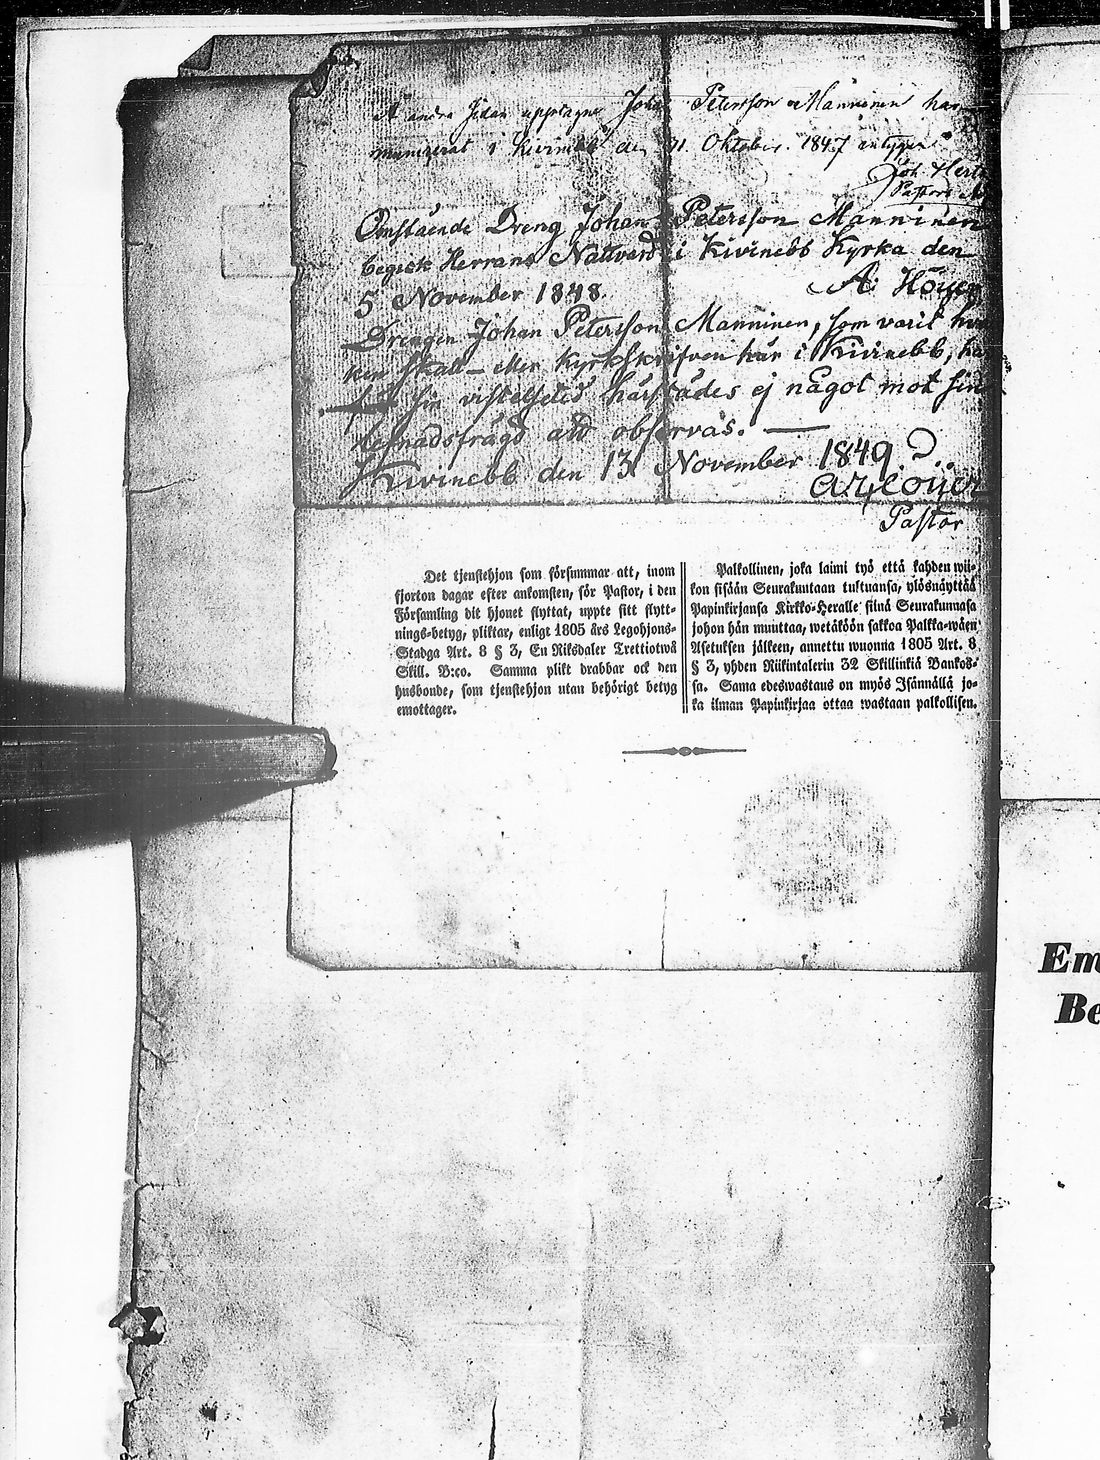 A andra sidan upptagne Johan Petersson Manninen har
i Kivinebb den 31 Oktober 1847
Joh. Hert
Pastors
Omstående Dreng Johan Petersson Manninen
begick Herrans Nattvard i Kivinebb Kyrka den
5 November 1848. A. Höijer
Drengen Johan Petersson Manninen, som varit hvar
ken skatt- eller kyrkskrifven här i Kivinebb, ha
sin vistelsetid härstädes ej något mot sin
lefnadsfrägd att observas. —
Kivinebb den 13 November 1849
Pastor
Det tjenstehjon som försummar att, inom
fjorton dagar efter ankomsten, för Pastor, i den
Församling dit hjonet flyttat, uppte sitt flytt-
nings-betyg, pliktar, enligt 1805 års Legohjons-
Stadga Art. 8 § 3, En Riksdaler Trettiotwå
Skill. B:co. Samma plikt drabbar ock den
husbonde, som tjenstehjon utan behörigt betyg
emottager.
Palkollinen, joka laimi lyö että kahden wii-
kon sisään Seurakuntaan tultuansa, ylösnäyttää
Papinkirjansa Kirkko-Heralle siinä Seurakunnasa
johon hän muuttaa, wetäköön sakkoa Palkka-wäen
Asetuksen jälkeen, annettu wuonna 1805 Art. 8
§ 3, yhden Riikintalerin 32 Skillinkiä Bankos-
sa. Sama edeswastaus on myös Isännällä jo-
ka ilman Papinkirjaa ottaa wastaan palkollisen.
Em
Be